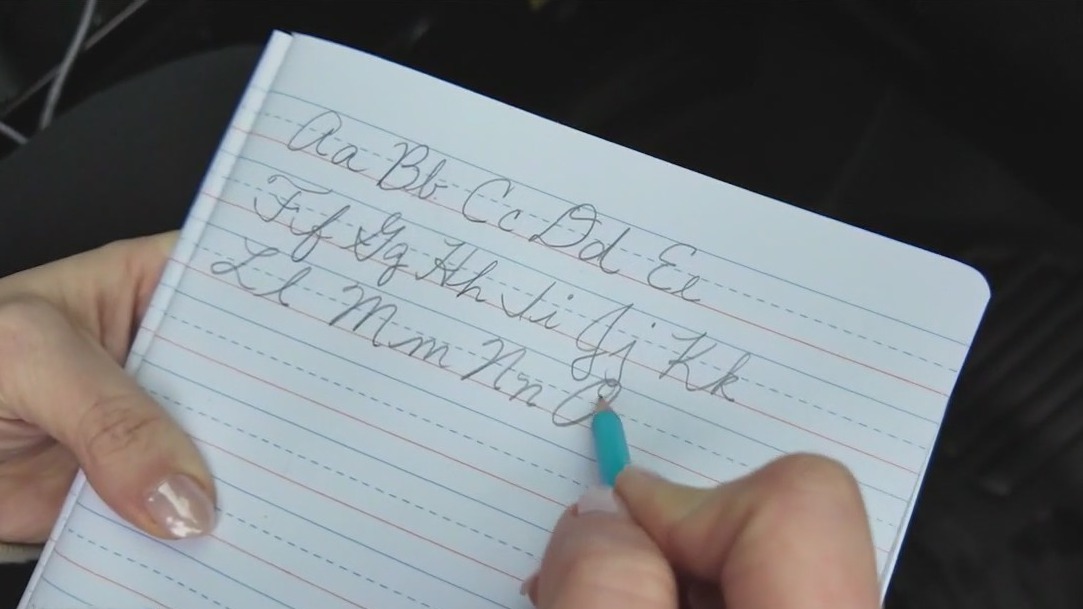 Aa Bb Cc Dd Ee
Ff Gg Hh Ii Jj Kk
Ll Mm Nn O